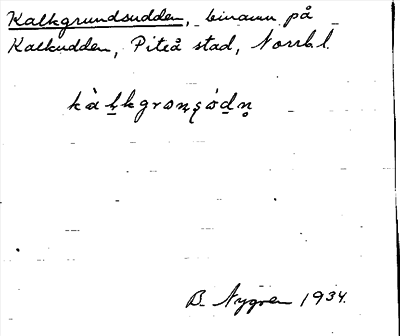 Kalkgrundsudden, binamn på
Kalkudden, Piteå stad, Norrb. l.
B. Nygren 1934.